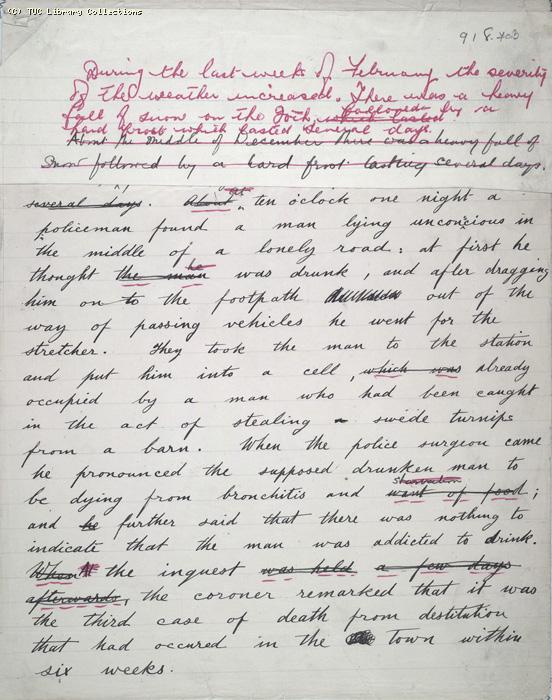 (C) TUC Library Collections
918.
During the last weeks of February the severity
of the weather increased. There was a heavy
fall of snow on the 20th, followed by a
which lasted
hard frost which lasted several days.
About the middle of December there was a heavy fall of
snow followed by a hard frost lasting several days.
several days. About at ten o'clock one night a
policeman found a man lying unconcious in
the middle of a lonely road: at first he
thought the man he was drunk, and after dragging
him on to the footpath out of the
way of passing vehicles he went for the
stretcher. They took the man to the station
and put him into a cell, which was already
occupied by a man who had been caught
in the act of stealing a swede turnips
from a barn. When the police surgeon came
he pronounced the supposed drunken man to
be dying from bronchitis and want of food starvation;
and he further said that there was nothing to
indicate that the man was addicted to drink.
When At the inquest was held a few days
afterwards, the coroner remarked that it was
the third case of death from destitution
that had occured in the town within
six weeks.